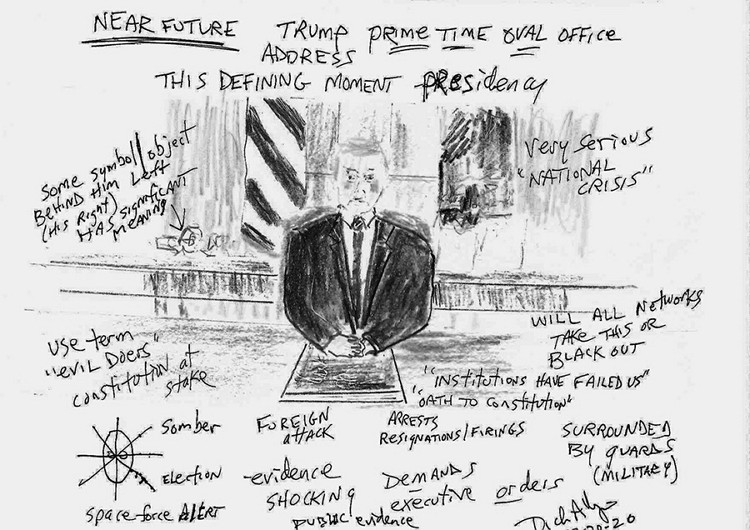 NEAR FUTURE
TRUMP PRIME TIME OVAL OFFICE
ADDRESS
THIS DEFINING MOMENT PRESIDENCY
some symbol/object
BEHIND HIM LEFT
(HIS Right)
HAS SIGNIFICANT
MEANING
Very serious
"NATIONAL
CRISIS"
use term
"EVIL DOERS"
constitution at
stake
WILL ALL NETWORKS
TAKE THIS OR
BLACK OUT
"INSTITUTIONS HAVE FAILED US"
"OATH TO CONSTITUTION"
Somber
Election
space-force ALERT
FOREIGN
attack
evidence
SHOCKING
PUBLIC evidence
ARRESTS
RESIGNATIONS/FIRINGS
DEMANDS
executive orders
SURROUNDED
BY GUARDS
(MILITARY)